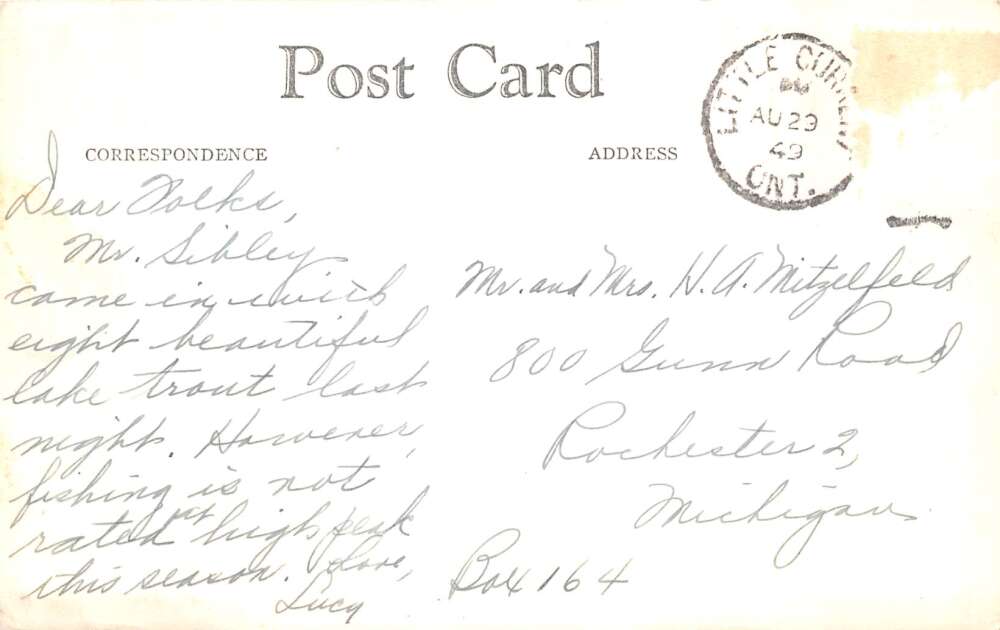 Post Card
CORRESPONDENCE
ADDRESS
LITTLE CURRENT
PM
AU 29
49
ONT.
Dear Folks,
Mr. Sibley
came in with
eight beautiful
lake trout last
night. However,
fishing is not
rated at high peak
this season. Love,
Lucy
Mr. and Mrs. H. A. Mitzelfeld
800 Gunn Road
Rochester 2,
Michigan
Box 164